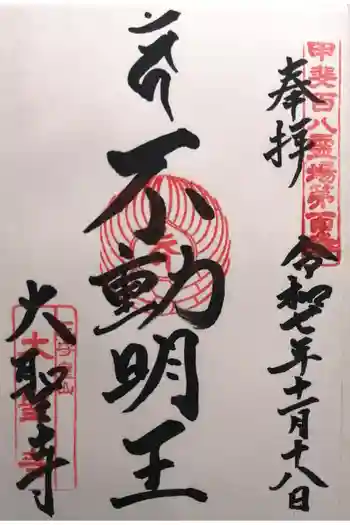 甲斐百八霊場第
奉拝
令和七年十一月十八日
不動明王
大聖寺